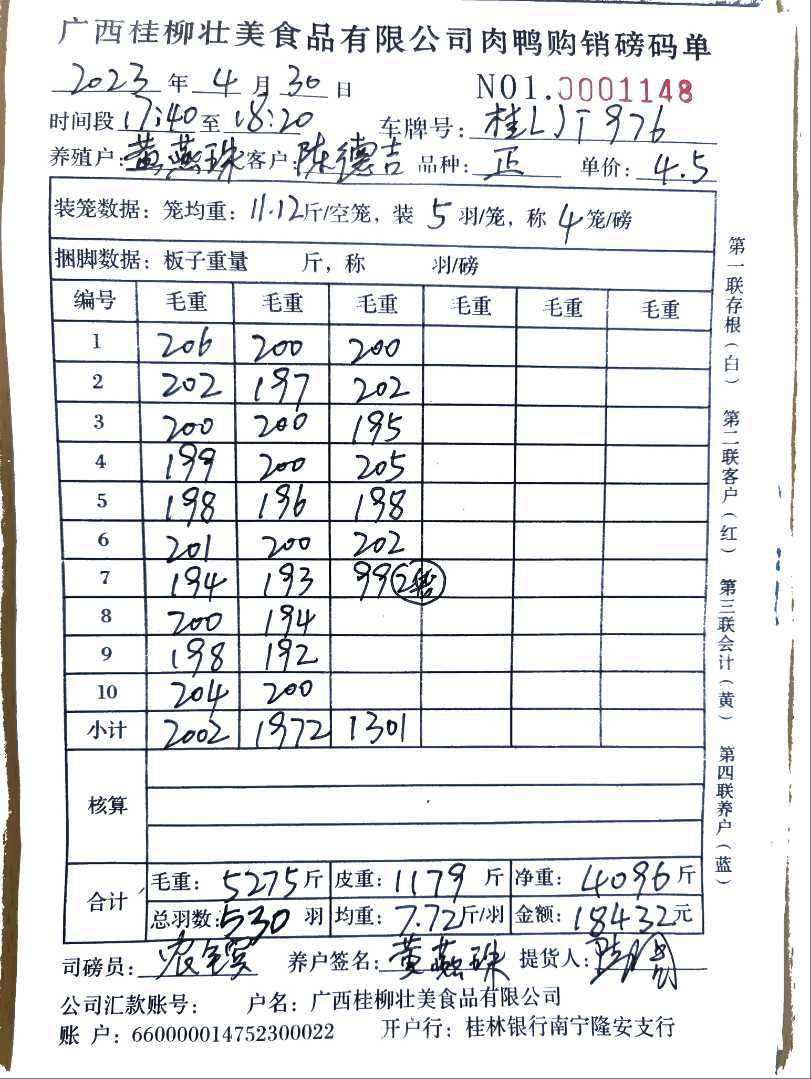 广西桂柳壮美食品有限公司肉鸭购销磅码单
2023 年 4 月 30 日 NO1.0001148
时间段 17:40 至 18:20 车牌号: 桂LJT976
养殖户: 黄燕珠 客户: 陈德吉 品种: 正 单价: 4.5
装笼数据: 笼均重: 11.12 斤/空笼, 装 5 羽/笼, 称 4 笼/磅
捆脚数据: 板子重量 斤, 称 羽/磅
编号 毛重 毛重 毛重 毛重 毛重 毛重
1 206 200 200
2 202 197 202
3 200 200 195
4 199 200 205
5 198 196 198
6 201 200 202
7 194 193 99 (2笼)
8 200 194
9 198 192
10 204 200
小计 2002 1972 1301
核算
合计 毛重: 5275 斤 皮重: 1179 斤 净重: 4096 斤
总羽数: 530 羽 均重: 7.72 斤/羽 金额: 18432 元
司磅员: 养户签名: 黄燕珠 提货人:
公司汇款账号: 户名: 广西桂柳壮美食品有限公司
账 户: 660000014752300022 开户行: 桂林银行南宁隆安支行
第一联存根(白)
第二联客户(红)
第三联会计(黄)
第四联养户(蓝)